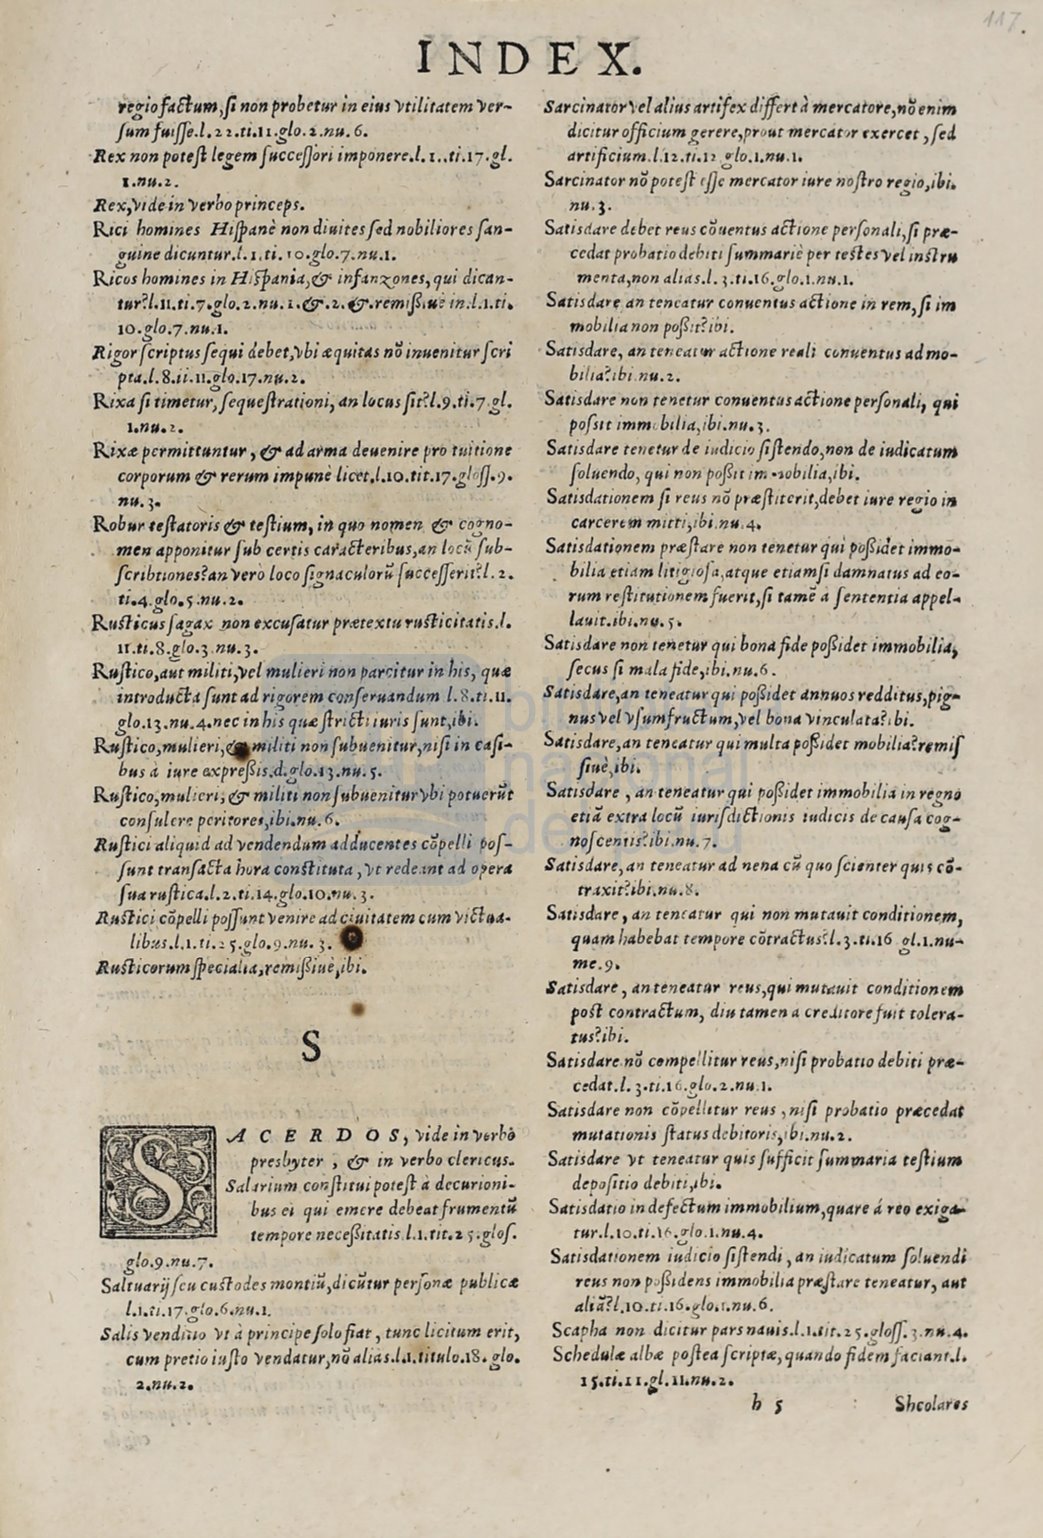 117.
INDEX.
regio factum, si non probetur in eius vtilitatem ver-
sum fuisse.l.22.ti.11.glo.2.nu.6.
Rex non potest legem successori imponere.l.1..ti.17.gl.
1.nu.2.
Rex, vide in verbo princeps.
Rici homines Hispanè non diuites sed nobiliores san-
guine dicuntur.l.1.ti.10.glo.7.nu.1.
Ricos homines in Hispania, & infanzones, qui dican-
tur?l.11.ti.7.glo.2.nu.1.&.2.&.remissiuè in.l.1.ti.
10.glo.7.nu.1.
Rigor scriptus sequi debet, vbi æquitas nõ inuenitur scri
pta.l.8.ti.11.glo.17.nu.2.
Rixa si timetur, sequestrationi, an locus sit?l.9.ti.7.gl.
1.nu.2.
Rixæ permittuntur, & ad arma deuenire pro tuitione
corporum & rerum impunè licet.l.10.tit.17.gloss.9.
nu.3.
Robur testatoris & testium, in quo nomen & cogno-
men apponitur sub certis caracteribus, an locũ sub-
scribtiones? an verò loco signaculorũ successerit?l.2.
ti.4.glo.5.nu.2.
Rusticus sagax non excusatur prætextu rusticitatis.l.
11.ti.8.glo.3.nu.3.
Rustico, aut militi, vel mulieri non parcitur in his, quæ
introducta sunt ad rigorem conseruandum l.8.ti.11.
glo.13.nu.4.nec in his quæ stricti iuris sunt, ibi.
Rustico, mulieri, & militi non subuenitur, nisi in casi-
bus à iure expressis.d.glo.13.nu.5.
Rustico, mulieri, & militi non subuenitur vbi potuerũt
consulere peritores, ibi.nu.6.
Rustici aliquid ad vendendum adducentes cõpelli pos-
sunt transacta hora constituta, vt redeant ad opera
sua rustica.l.2.ti.14.glo.10.nu.3.
Rustici cõpelli possunt venire ad ciuitatem cum victua-
libus.l.1.ti.25.glo.9.nu.3.
Rusticorum specialia, remissiuè, ibi.
S
SACERDOS, vide in verbo
presbyter, & in verbo clericus.
Salarium constitui potest à decurioni-
bus ei qui emere debeat frumentũ
tempore necessitatis.l.1.tit.25.glos.
glo.9.nu.7.
Saltuarij seu custodes montiũ, dicũtur personæ publicæ
l.1.ti.17.glo.6.nu.1.
Salis venditio vt à principe solo fiat, tunc licitum erit,
cum pretio iusto vendatur, nõ aliàs.l.1.titulo.18.glo.
2.nu.2.
Sarcinator vel alius artifex differt à mercatore, nõ enim
dicitur officium gerere, prout mercator exercet, sed
artificium.l.12.ti.12 glo.1.nu.1.
Sarcinator nõ potest esse mercator iure nostro regio, ibi.
nu.3.
Satisdare debet reus cõuentus actione personali, si præ-
cedat probatio debiti summariè per testes vel instru
menta, non alias.l.3.ti.16.glo.1.nu.1.
Satisdare an teneatur conuentus actione in rem, si im
mobilia non possit? ibi.
Satisdare, an teneatur actione reali conuentus ad mo-
bilia? ibi.nu.2.
Satisdare non tenetur conuentus actione personali, qui
possit immobilia, ibi.nu.3.
Satisdare tenetur de iudicio sistendo, non de iudicatum
soluendo, qui non possit immobilia, ibi.
Satisdationem si reus nõ præstiterit, debet iure regio in
carcerem mitti, ibi.nu.4.
Satisdationem præstare non tenetur qui possidet immo-
bilia etiam litigiosa, atque etiamsi damnatus ad eo-
rum restitutionem fuerit, si tamẽ à sententia appel-
lauit.ibi.nu.5.
Satisdare non tenetur qui bona fide possidet immobilia,
secus si mala fide, ibi.nu.6.
Satisdare, an teneatur qui possidet annuos redditus, pig-
nus vel vsumfructum, vel bona vinculata? ibi.
Satisdare, an teneatur qui multa possidet mobilia? remis
siuè, ibi.
Satisdare, an teneatur qui possidet immobilia in regno
etiã extra locũ iurisdictionis iudicis de causa cog-
noscentis? ibi.nu.7.
Satisdare, an teneatur ad nena cũ quo scienter quis cõ-
traxit? ibi.nu.8.
Satisdare, an teneatur qui non mutauit conditionem,
quam habebat tempore cõtractus?l.3.ti.16 gl.1.nu-
me.9.
Satisdare, an teneatur reus, qui mutauit conditionem
post contractum, diu tamen a creditore fuit tolera-
tus? ibi.
Satisdare nõ compellitur reus, nisi probatio debiti præ-
cedat.l.3.ti.16.glo.2.nu.1.
Satisdare non cõpellitur reus, nisi probatio præcedat
mutationis status debitoris, ibi.nu.2.
Satisdare vt teneatur quis sufficit summaria testium
depositio debiti, ibi.
Satisdatio in defectum immobilium, quare á reo exiga-
tur.l.10.ti.16.glo.1.nu.4.
Satisdationem iudicio sistendi, an iudicatum soluendi
reus non possidens immobilia præstare teneatur, aut
aliã?l.10.ti.16.glo.1.nu.6.
Scapha non dicitur pars nauis.l.1.tit.25.gloss.3.nu.4.
Schedulæ albæ postea scriptæ, quando fidem faciant.l.
15.ti.11.gl.11.nu.2.
h 5 Shcolares